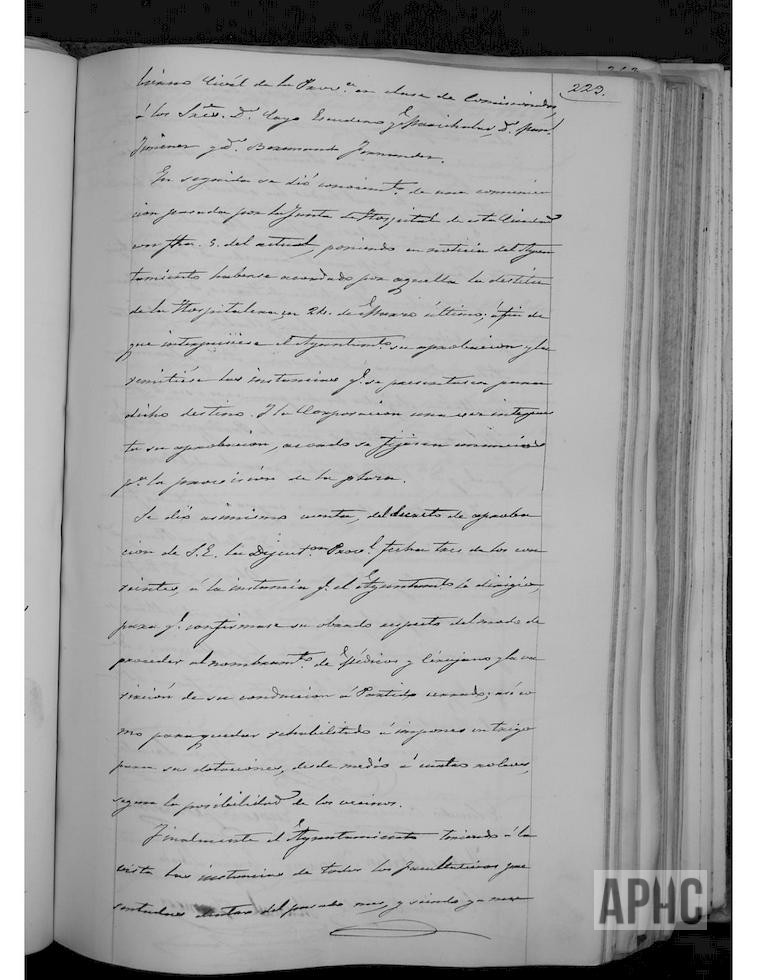 223.
bierno Civil de la Prov.ª en clase de Comisionados,
á los Sres. D.n Cayo Escudero y Marichalar, D.n Man.l
Jimenez y D.n Fernandez.
En seguida se dió conocim.to de una comunica
cion pasada por la Junta del Hospital de esta Ciudad
con fha. 5. del actual, poniendo en noticia del Ayun
tamiento haberse acordado por aquella la destitu
de la Hospitalera en 24. de Marzo último; á fin de
que interpusiese el Ayuntam.to su aprobacion y la
remitiese las instancias q.e se presentasen para
dicho destino. Y la Corporacion una vez interpues
ta su aprobacion, acordó se fijasen anuncios
p.a la provision de la plaza.
Se dió asimismo cuenta, del decreto de aproba
cion de S.E. la Diput.on Prov.l fecha tres de los cor
rientes, á la instancia q.e el Ayuntam.to le dirigió,
para q.e confirmase su obrado respecto del modo de
proceder al nombram.to de Médicos y Cirujano y la va
riacion de su conduccion á Partido cerrado; asi co
mo para quedar rehabilitado á imponer en trigo
para sus dotaciones, desde medio á cuatro robos,
segun la posibilidad de los vecinos.
Finalmente el Ayuntamiento teniendo á la
vista las instancias de todos los facultativos que
antes del pasado mes y siendo ya